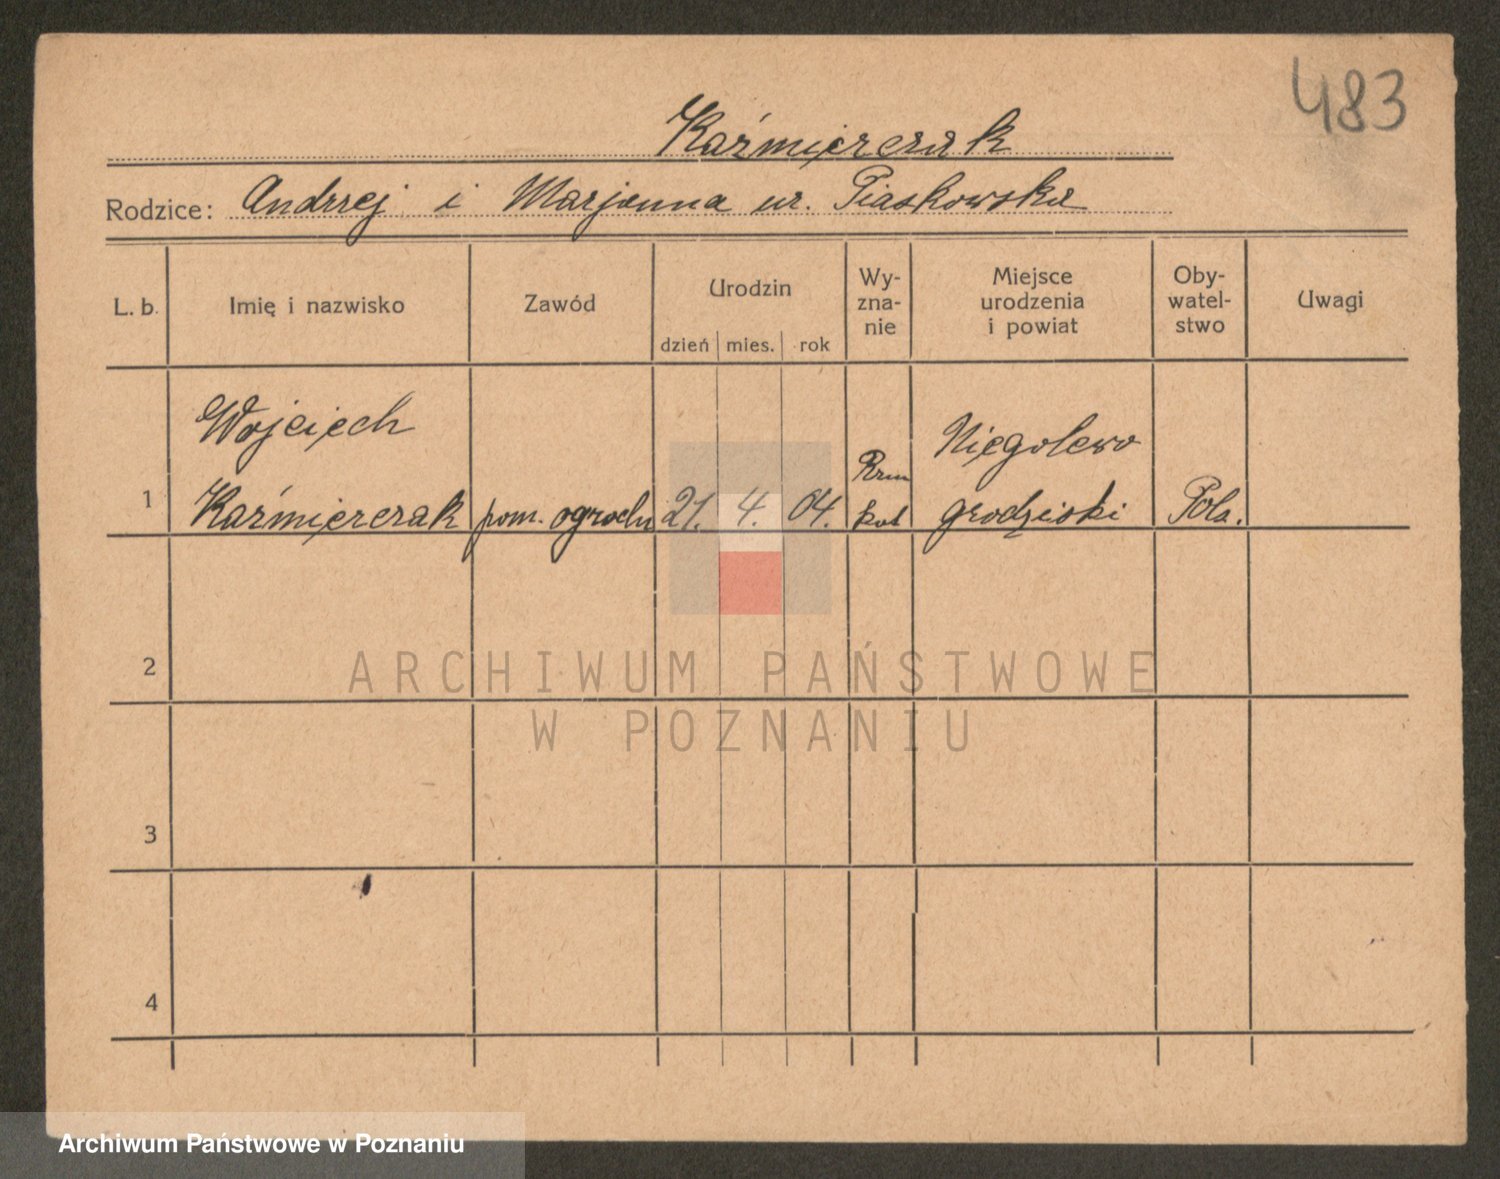 483
Kaźmierczak
Rodzice: Andrzej i Marjanna ur. Piaskowska
L. b.
Imię i nazwisko
Zawód
Urodzin
dzień mies. rok
Wy-
zna-
nie
Miejsce
urodzenia
i powiat
Oby-
watel-
stwo
Uwagi
1
Wojciech
Kaźmierczak
pom. ogrodn
21. 4. 04.
Rzm
kat
Niegolewo
grodziski
Pola.
2
3
4
ARCHIWUM PAŃSTWOWE
W POZNANIU
Archiwum Państwowe w Poznaniu